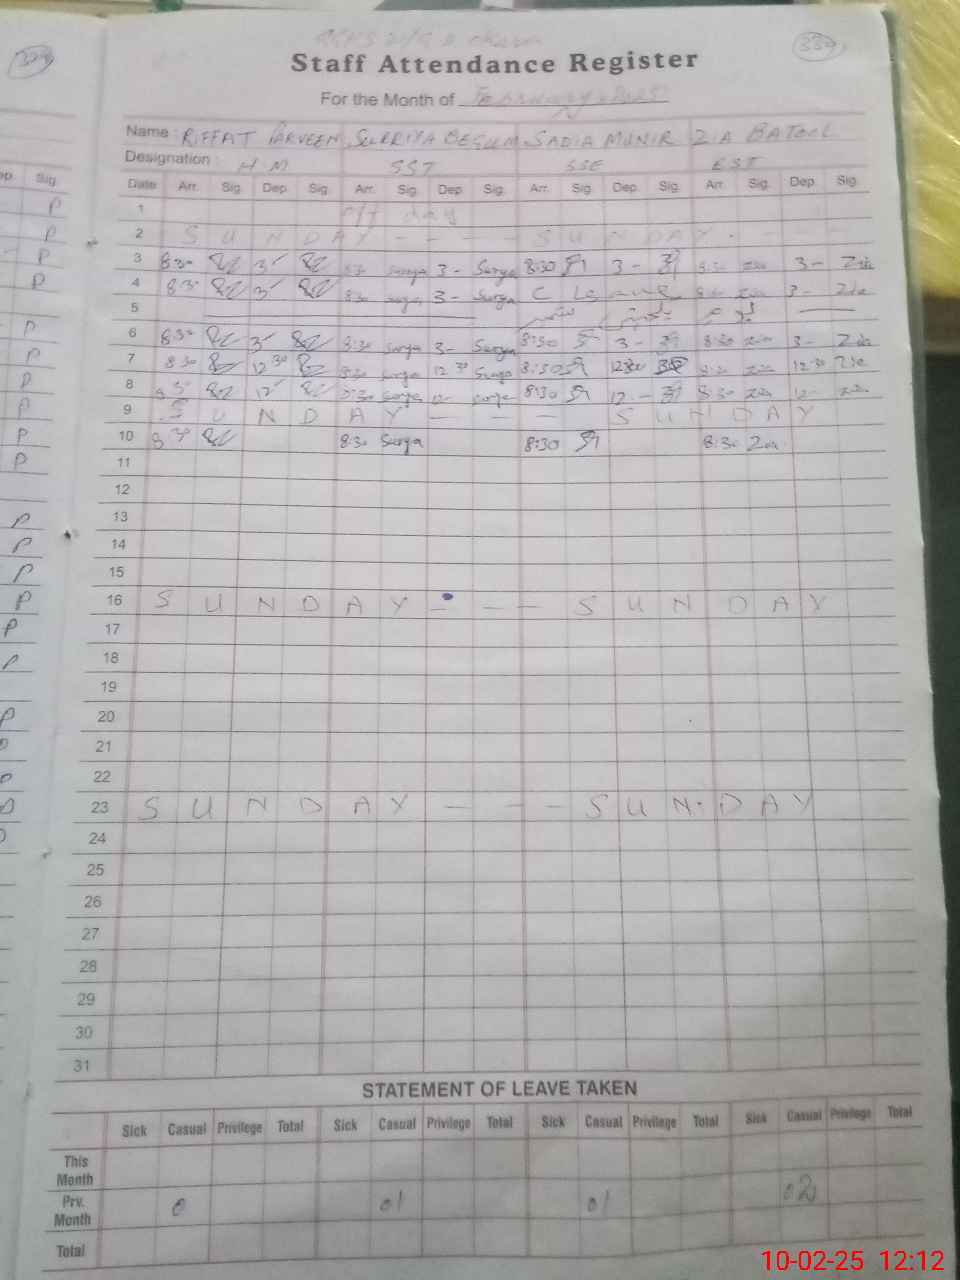 339
Staff Attendance Register
For the Month of February 2025
Name: RIFFAT PARVEEN SURRIYA BEGUM SADIA MUNIR ZIA BATOOL
Designation: H M SST SSE EST
Date Arr. Sig. Dep. Sig. Arr. Sig. Dep. Sig. Arr. Sig. Dep. Sig. Arr. Sig. Dep. Sig.
1 off day
2 S U N D A Y - - - - S U N D A Y -
3 8:30 3 8:30 Surya 3- Surya 8:30 3- 8:30 Zia 3- Zia
4 8:30 3 8:30 Surya 3- Surya C Leave 8:30 Zia 3- Zia
5 یوم یکجہتی کشمیر
6 8:30 3 8:30 Surya 3- Surya 8:30 3- 8:30 Zia 3- Zia
7 8:30 12:30 8:30 Surya 12:30 Surya 8:30 12:30 8:30 Zia 12:30 Zia
8 8:30 12 8:30 Surya 12- Surya 8:30 12- 8:30 Zia 12- Zia
9 S U N D A Y - - - S U N D A Y
10 8:30 8:30 Surya 8:30 8:30 Zia
11
12
13
14
15
16 S U N D A Y - - - S U N D A Y
17
18
19
20
21
22
23 S U N D A Y - - - S U N D A Y
24
25
26
27
28
29
30
31
STATEMENT OF LEAVE TAKEN
Sick Casual Privilege Total Sick Casual Privilege Total Sick Casual Privilege Total Sick Casual Privilege Total
This Month
Prv. Month 0 01 01 02
Total
10-02-25 12:12